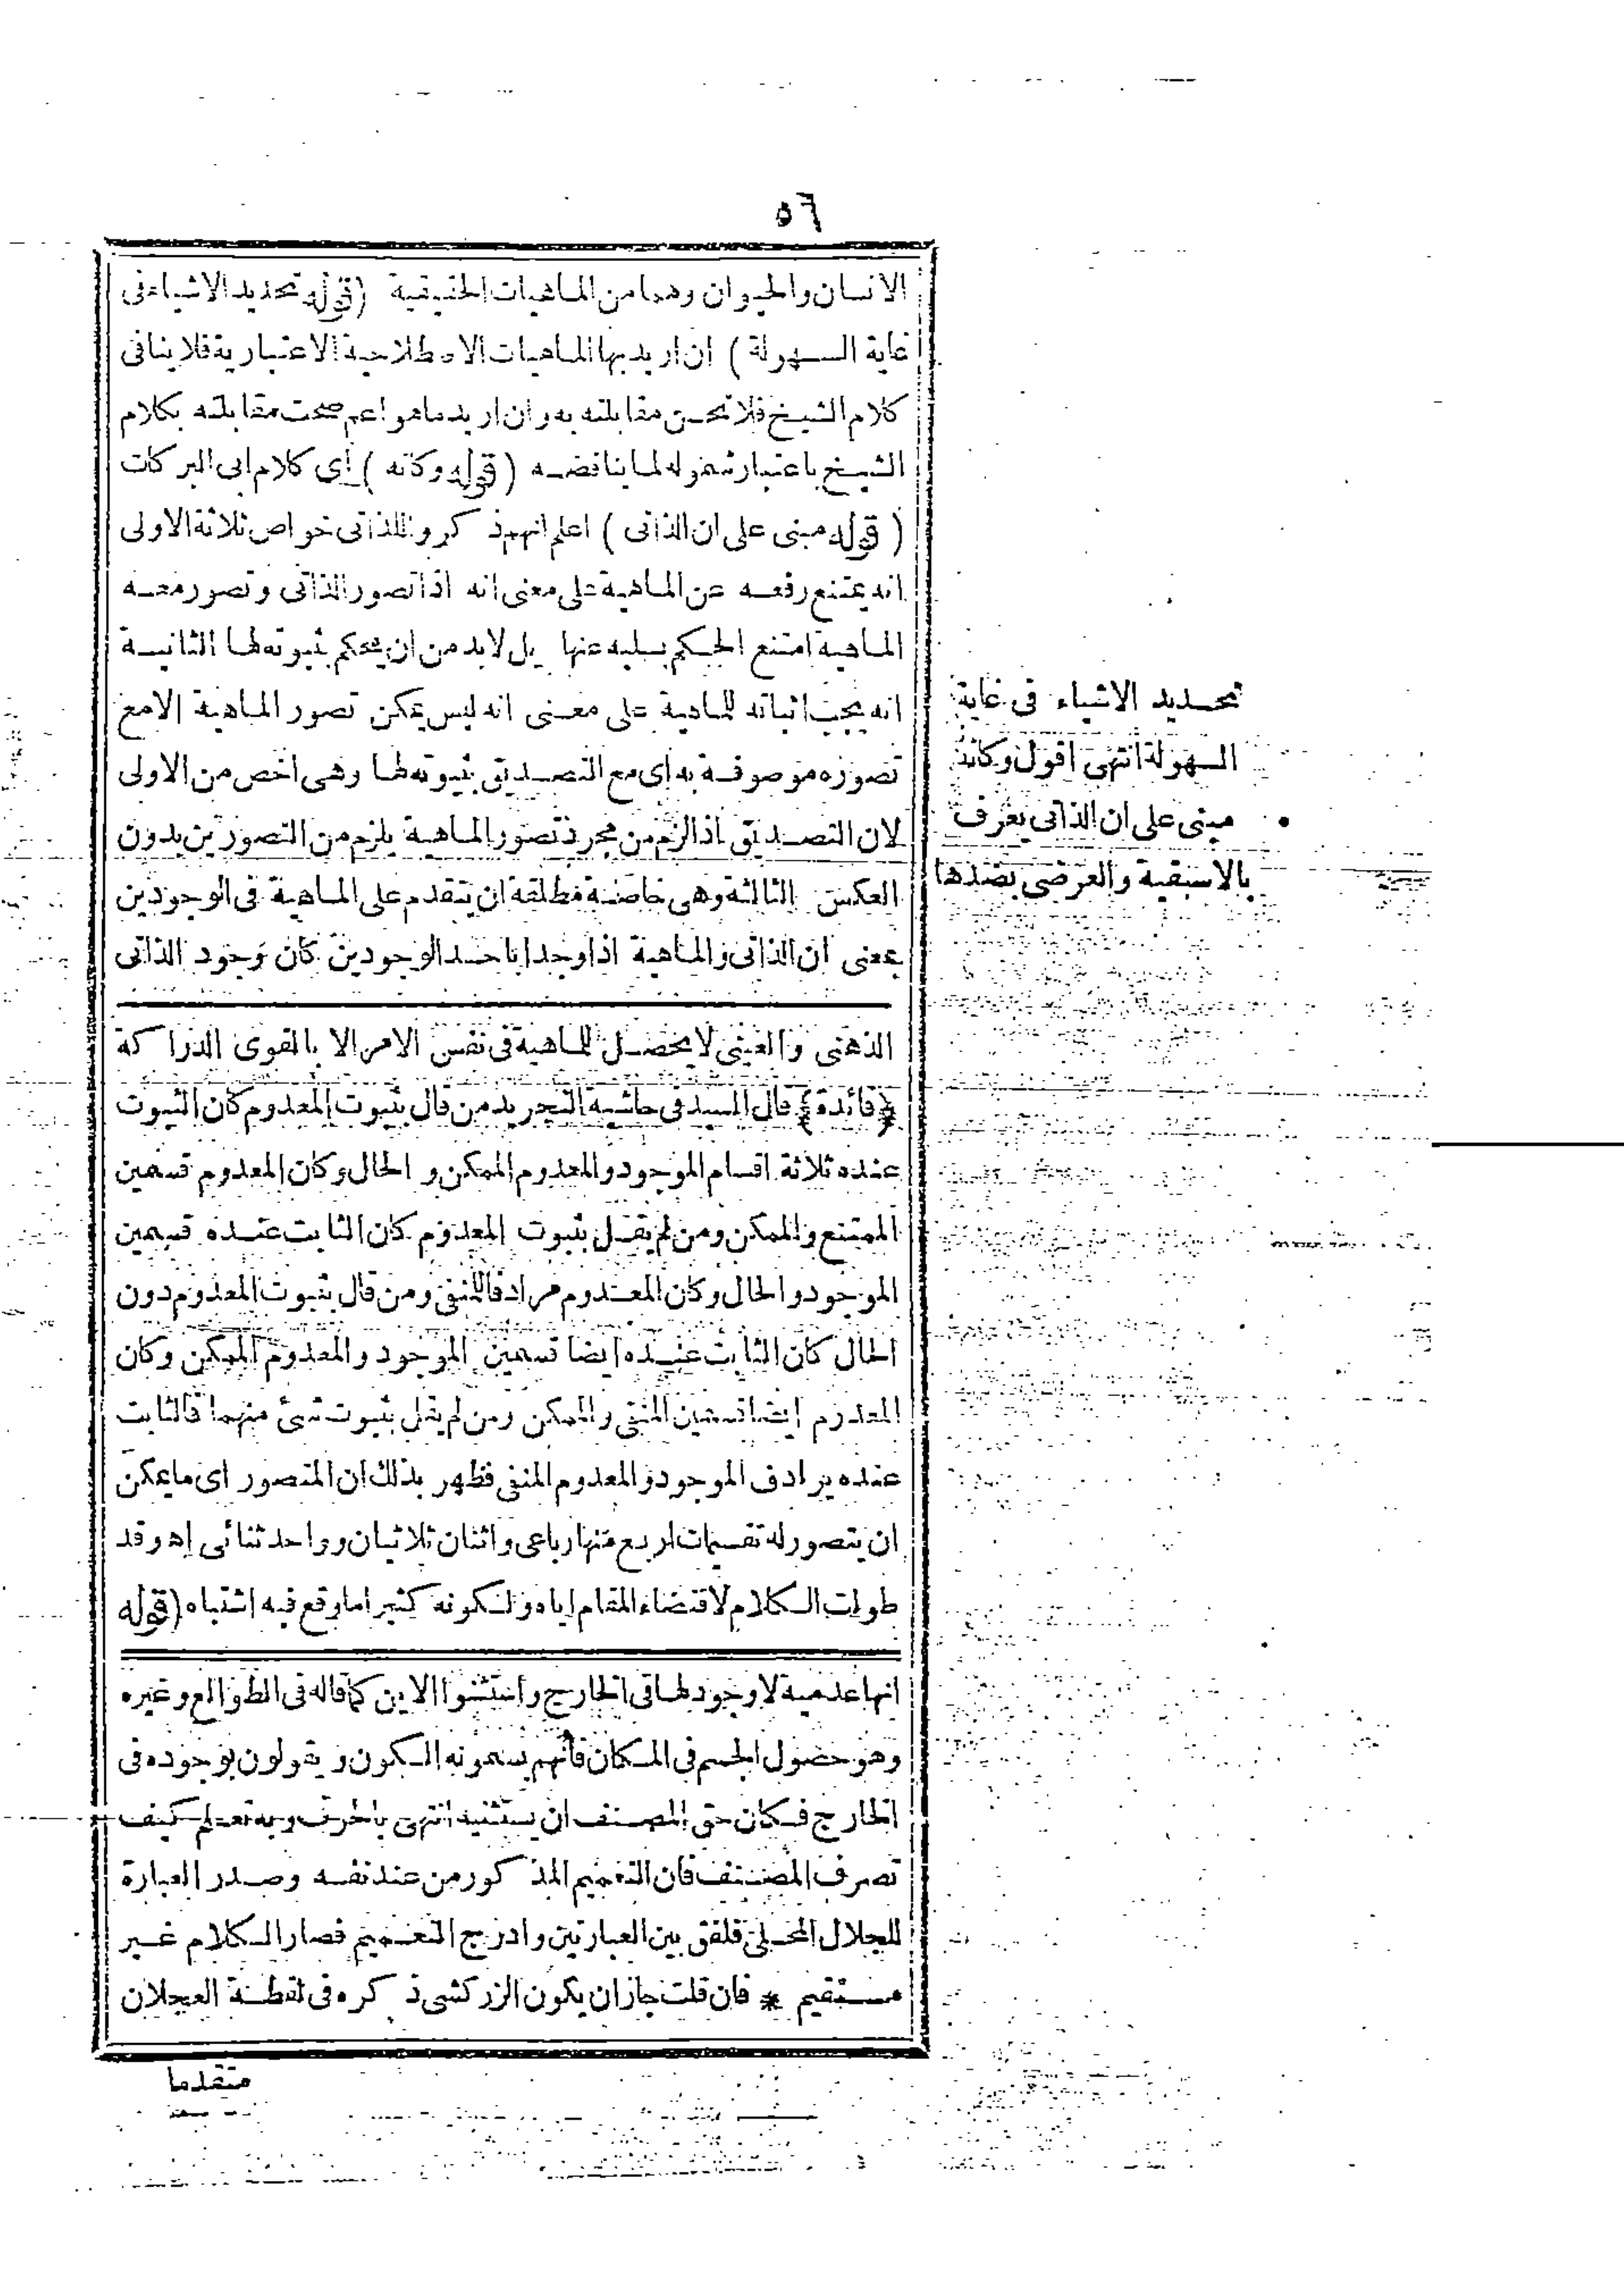 ٥٦
الانسان والحيوان وهما من الماهيات الحقيقية (قوله تحديد الاشياء فى
غاية السهولة) ان اريد بها الماهيات الاصطلاحية الاعتبارية فلا ينافى
كلام الشيخ فلا تحسن مقابلته به وان اريد ما هو اعم صحت مقابلته بكلام
الشيخ باعتبار شموله لما يناقضه (قوله وكانه) اى كلام ابى البركات
(قوله مبنى على ان الذاتى) اعلم انهم ذكروا للذاتى خواص ثلاثة الاولى
انه يمتنع رفعه عن الماهية على معنى انه اذا تصور الذاتى وتصور معه
الماهية امتنع الحكم بسلبه عنها بل لابد من ان يحكم بثبوته لها الثانية
انه يجب اثباته للماهية على معنى انه ليس يمكن تصور الماهية الامع
تصوره موصوفة به اى مع التصديق بثبوته لها وهى اخص من الاولى
لان التصديق اذا لزم من مجرد تصور الماهية يلزم من التصورين بدون
العكس الثالثة وهى خاصة مطلقة ان يتقدم على الماهية فى الوجودين
بمعنى ان الذاتى والماهية اذا وجدا باحد الوجودين كان وجود الذاتى
تحديد الاشياء فى غاية
السهولة انتهى اقول وكانه
مبنى على ان الذاتى يعرف
بالاسبقية والعرضى بضدها
الذهنى والعينى لا يحصل للماهية فى نفس الامر الا بالقوى الدراكة
﴿فائدة﴾ قال السيد فى حاشية التجريد من قال بثبوت المعدوم كان الثبوت
عنده ثلاثة اقسام الموجود والمعدوم الممكن و الحال وكان المعدوم قسمين
الممتنع والممكن ومن لم يقل بثبوت المعدوم كان الثابت عنده قسمين
الموجود والحال وكان المعدوم مرادفا للمنفى ومن قال بثبوت المعدوم دون
الحال كان الثابت عنده ايضا قسمين الموجود والمعدوم الممكن وكان
المعدوم ايضا قسمين المنفى والممكن ومن لم يقل بثبوت شئ منهما فالثابت
عنده يرادف الموجود والمعدوم المنفى فظهر بذلك ان المتصور اى ما يمكن
ان يتصور له تقسيمات اربع منها رباعى واثنان ثلاثيان وواحد ثنائى اه وقد
طولت الكلام لاقتضاء المقام اياه ولكونه كثيرا ما وقع فيه اشتباه (قوله
انها عدمية لا وجود لها فى الخارج واستثنوا الاين كما قاله فى الطوالع وغيره
وهو حصول الجسم فى المكان فانهم يسمونه الكون ويقولون بوجوده فى
الخارج فكان حق المصنف ان يستثنيه انتهى بالحرف وبه تعلم كيف
تصرف المصنف فان التعميم المذكور من عند نفسه وصدر العبارة
للجلال المحلى فلفق بين العبارتين وادرج التعميم فصار الكلام غير
مستقيم * فان قلت جاز ان يكون الزركشى ذكره فى لقطة العجلان
متقدما